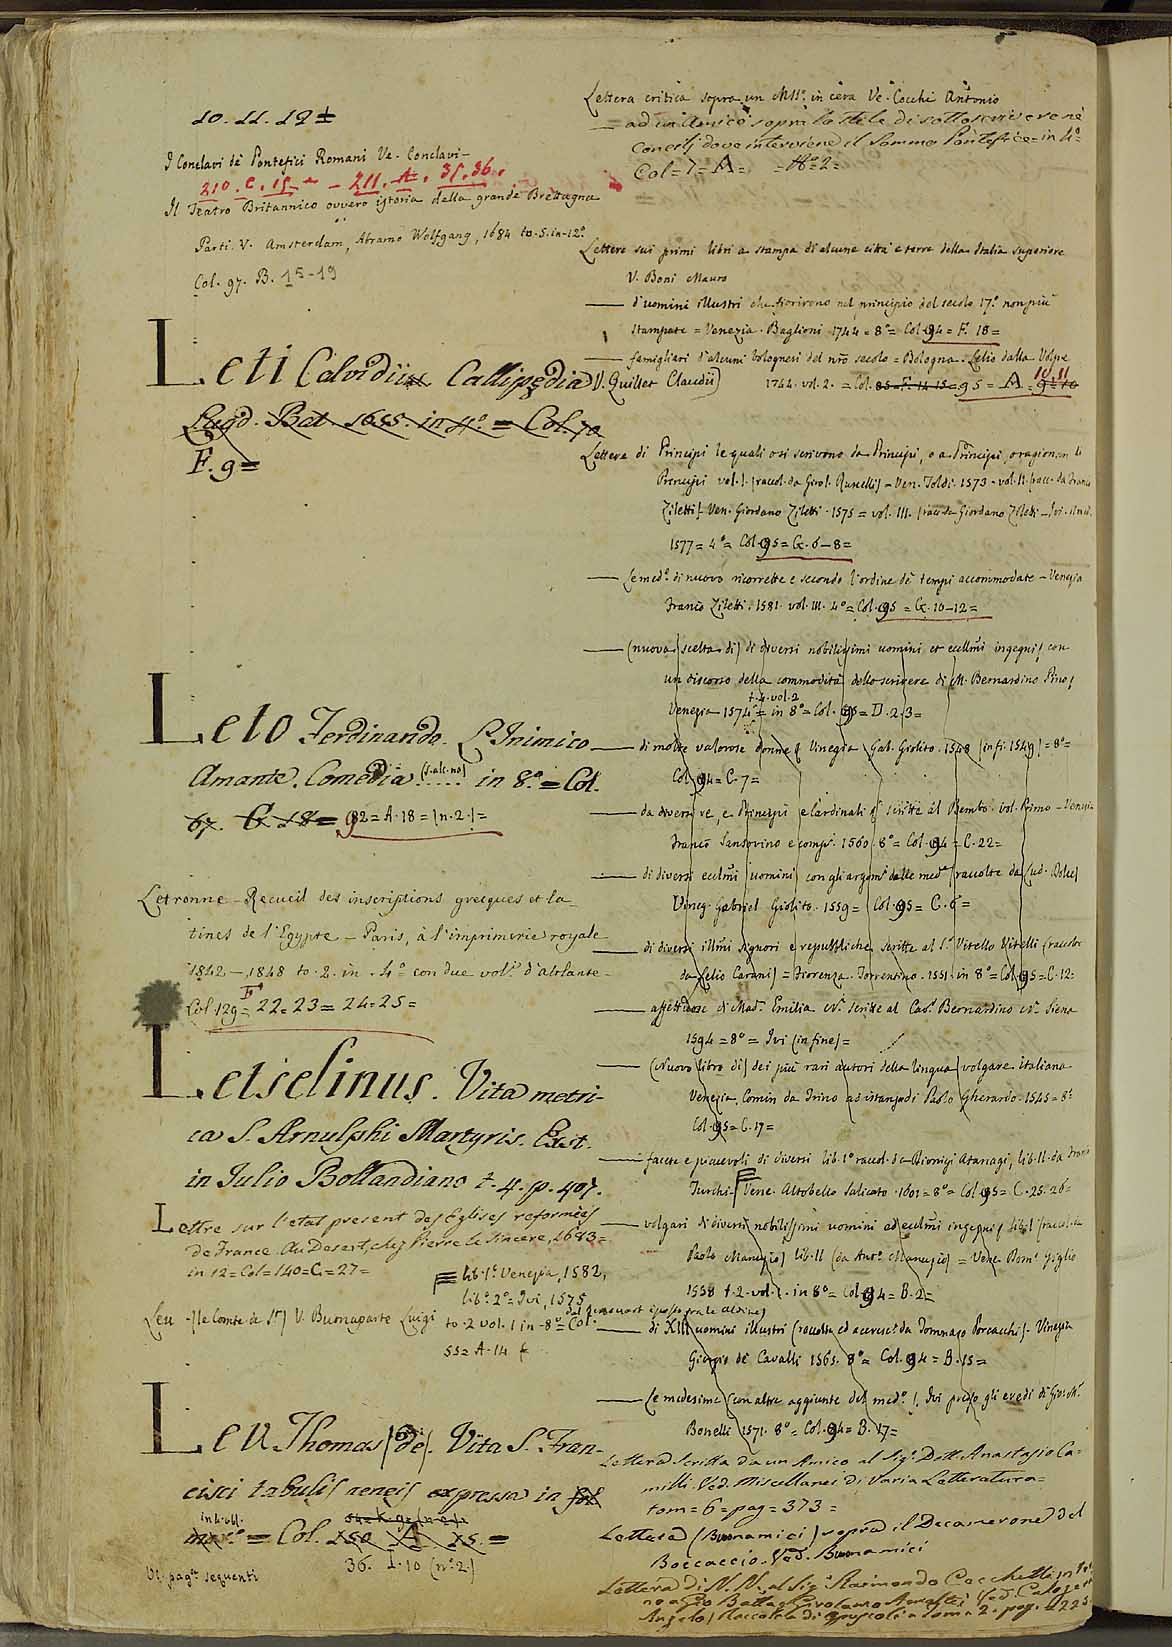 10. 11. 12 ±
I Conclavi de' Pontefici Romani Ve. Conclavi –
210. C. 15 – 211. A. 35. 36.
Il Teatro Britannico ovvero istoria della grande Brettagna
Parti. V. Amsterdam, Abramo Wolfgang, 1684 to. 5. in-12.º
Col. 97. B. 15-19
Leti Calvidii Callipedia V. Quillet Claudii)
Lugd. Bat. 1655. in 4.º = Col. 70
F. 9 =
Leto Ferdinando. L'Inimico
Amante. Comedia (s. alc. no) in 8.º = Col.
67. C. 18 = 92 = A. 18 = (n. 2.) =
Letronne – Recueil des inscriptions grecques et la-
tines de l'Egypte – Paris, à l'imprimerie royale
1842 – 1848 to. 2. in. 4.º con due vol.i d'atlante –
Col. 129 = 22 = 23 = 24 = 25 =
Letselinus. Vita metri-
ca S. Arnulphi Martyris. Exst.
in Julio Bollandiano t. 4. p. 407.
Lettre sur l'etat present des Eglises reformées
de France. Au Desert, chez Pierre le Sincere, 1673 =
in 12 = Col = 140 = C = 27 =
Leu – (le Comte de S.t) V. Buonaparte Luigi
lib. 1.º Venezia, 1582,
lib.º 2.º = Ivi, 1575
to. 2 vol. 1 in – 8.º = Col.
55 = A. 14
Leu Thomas (de). Vita S. Fran-
cisci tabulis aeneis expressa in fol
= Col. 150 A 15. =
36. A. 10 (n.º 2.)
Ve. pag.e seguenti
Lettera critica sopra un Ms.º in cera Ve. Cocchi Antonio
— ad un Amico sopra lo stile di sottoscrivere ne'
Concilj dove interviene il Sommo Pontefice = in 4.º
Col = 7 = A = = N.º 2 =
Lettere sui primi libri a stampa di alcune città e terre della Italia superiore
V. Boni Mauro
— d'uomini illustri che fiorirono nel principio del secolo 17.º non più
stampate = Venezia. Baglioni 1744 = 8.º = Col. 94 = F. 18 =
— famigliari d'alcuni bolognesi del nrõ secolo = Bologna. Lelio dalla Volpe
1744. vol. 2. = Col. 85 = F. 14-15 = 95 = A. 9 = 10
10. 11
Lettere di Principi le quali o si scrivono da Principi, o a Principi, o ragionan di
Principi vol. I. (raccol. da Girol. Ruscelli) – Ven. Toldi. 1573 – vol. II. (racc. da Franco
Ziletti) – Ven. Giordano Ziletti. 1575 = vol. III. (racc. da Giordano Ziletti – Ivi.
1577 = 4.º = Col. 95 = G. 6 – 8 =
— Le med.e di nuovo ricorrette e secondo l'ordine de' tempi accommodate – Venezia
Franco Ziletti. 1581. vol. III. 4.º = Col. 95 = G. 10 – 12 =
— (nuova scelta di) di diversi nobilissimi uomini et eccllmi ingegni, con
un discorso della commodità dello scrivere di M. Bernardino Pino,
t. 4. vol. 2
Venezia 1574 = in 8.º = Col. 95 = D. 2. 3 =
— di molte valorose donne, Vinegia Gab. Giolito. 1548 (in fi. 1549) = 8.º =
Col. 94 = C. 7 =
— da diversi re, e Principi e Cardinali scritte al Bembo. vol. Primo – Venezia
Franco Sansovino e comp. 1560. 8.º = Col. 94 = C. 22 =
— di diversi eccllmi uomini con gli argom.i dalle med.e (raccolte da Lud. Dolce)
Vineg. Gabriel Giolito. 1559 = Col. 95 = C. 6 =
— di diversi illmi signori e repubbliche scritte al S.r Vitello Vitelli (raccolte
da Lelio Carani) = Fiorenza. Torrentino. 1551. in 8.º = Col. 95 = C. 12 =
— affettuose di Mad.a Emilia N.a scritte al Cav.r Bernardino N.a Siena
1594 = 8.º = Ivi (in fine) =
— (Nuovo libro di) dei più rari autori della lingua volgare italiana
Venezia. Comin da Trino ad istanza di Paolo Gherardo. 1545 = 8.º
Col. 95 = C. 17 =
— facete e piacevoli di diversi lib. I.º raccol. da Dionigi Atanagi, lib. II. da Franco
Turchi – Vene. Altobello Salicato. 1601 = 8.º = Col. 95 = C. 25. 26 =
— volgari di diversi nobilissimi uomini ed eccllmi ingegni, lib. I (raccol. da
Paolo Manuzio) lib. II (da Ant.º Manuzio) = Vene. Dom.º Giglio
1558 t. 2. vol. 1. in 8.º = Col. 94 = B. 2 =
— di XIII uomini illustri (raccolte ed accresc.e da Tommaso Porcacchi). Vinezia
Giorgio de' Cavalli 1565. 8.º = Col. 94 = B. 15 =
— Le medesime (con altre aggiunte del med.º), Ivi presso gli eredi di Gio. M.
Bonelli 1571. 8.º = Col. 94 = B. 17 =
Lettera scritta da un Amico al Sig.r Dott. Anastasio Ca-
milli. Ved. Miscellanei di Varia Letteratura =
tom = 6 = pag = 373 =
Lettera (Buonamici) sopra il Decamerone del
Boccaccio. Ved. Buonamici
Lettera di N. N. al Sig.r Raimondo Cecchetti
Angelo, Raccolta di Opuscoli = Tom. 2. pag.